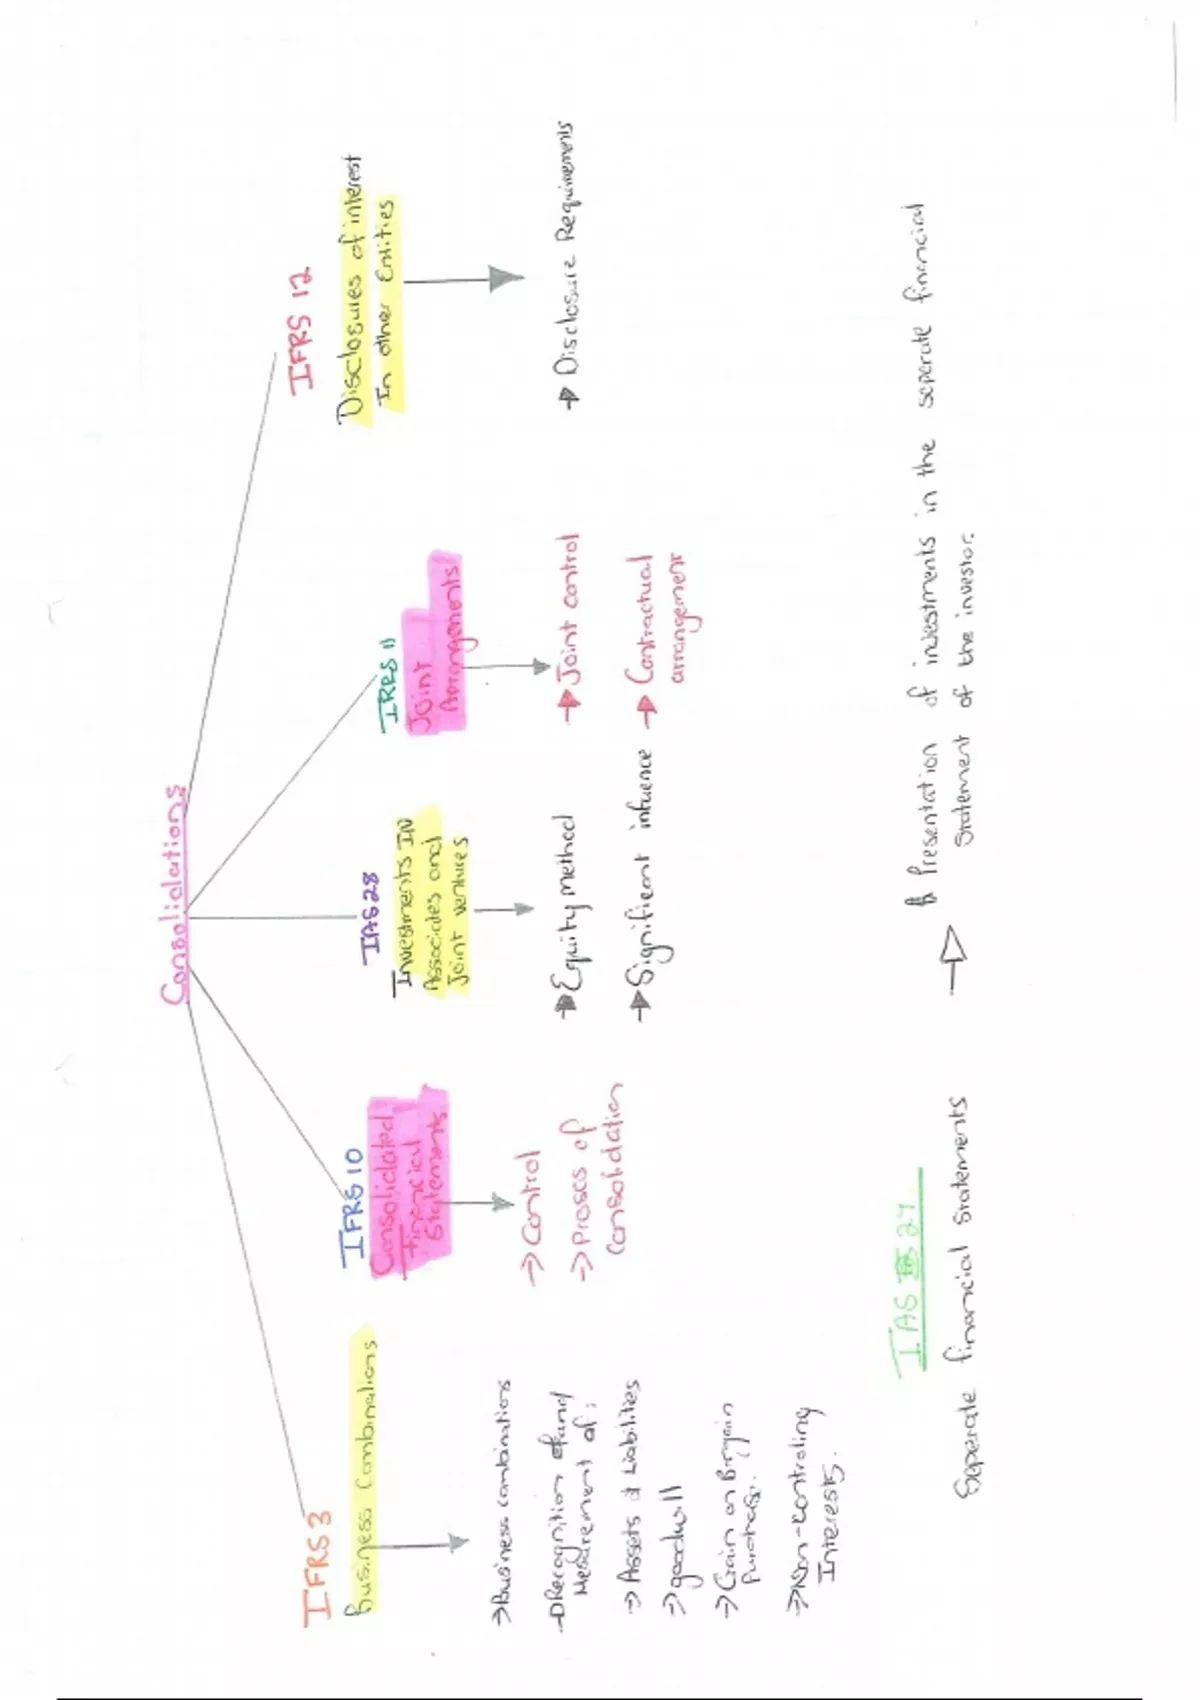 Consolidations
IFRS 3
Business Combinations
→ Business combinations
→ Recognition and
Measurement of:
→ Assets & Liabilities
→ goodwill
→ Gain on Bargain
Purchase.
→ Non-controling
Interests.
IFRS 10
Consolidated
Financial
Statements
→ Control
→ Proses of
Consolidation
IAS 28
Investments IN
Associates and
Joint ventures
→ Equity method
→ Significant infuence
IRFS 11
Joint
Arrangements
→ Joint control
→ Contractual
arrangement
IFRS 12
Disclosures of interest
In other Entities
→ Disclosure Requirements
IAS 27
Seperate financial statements → Presentation of investments in the seperate financial
statement of the investor.